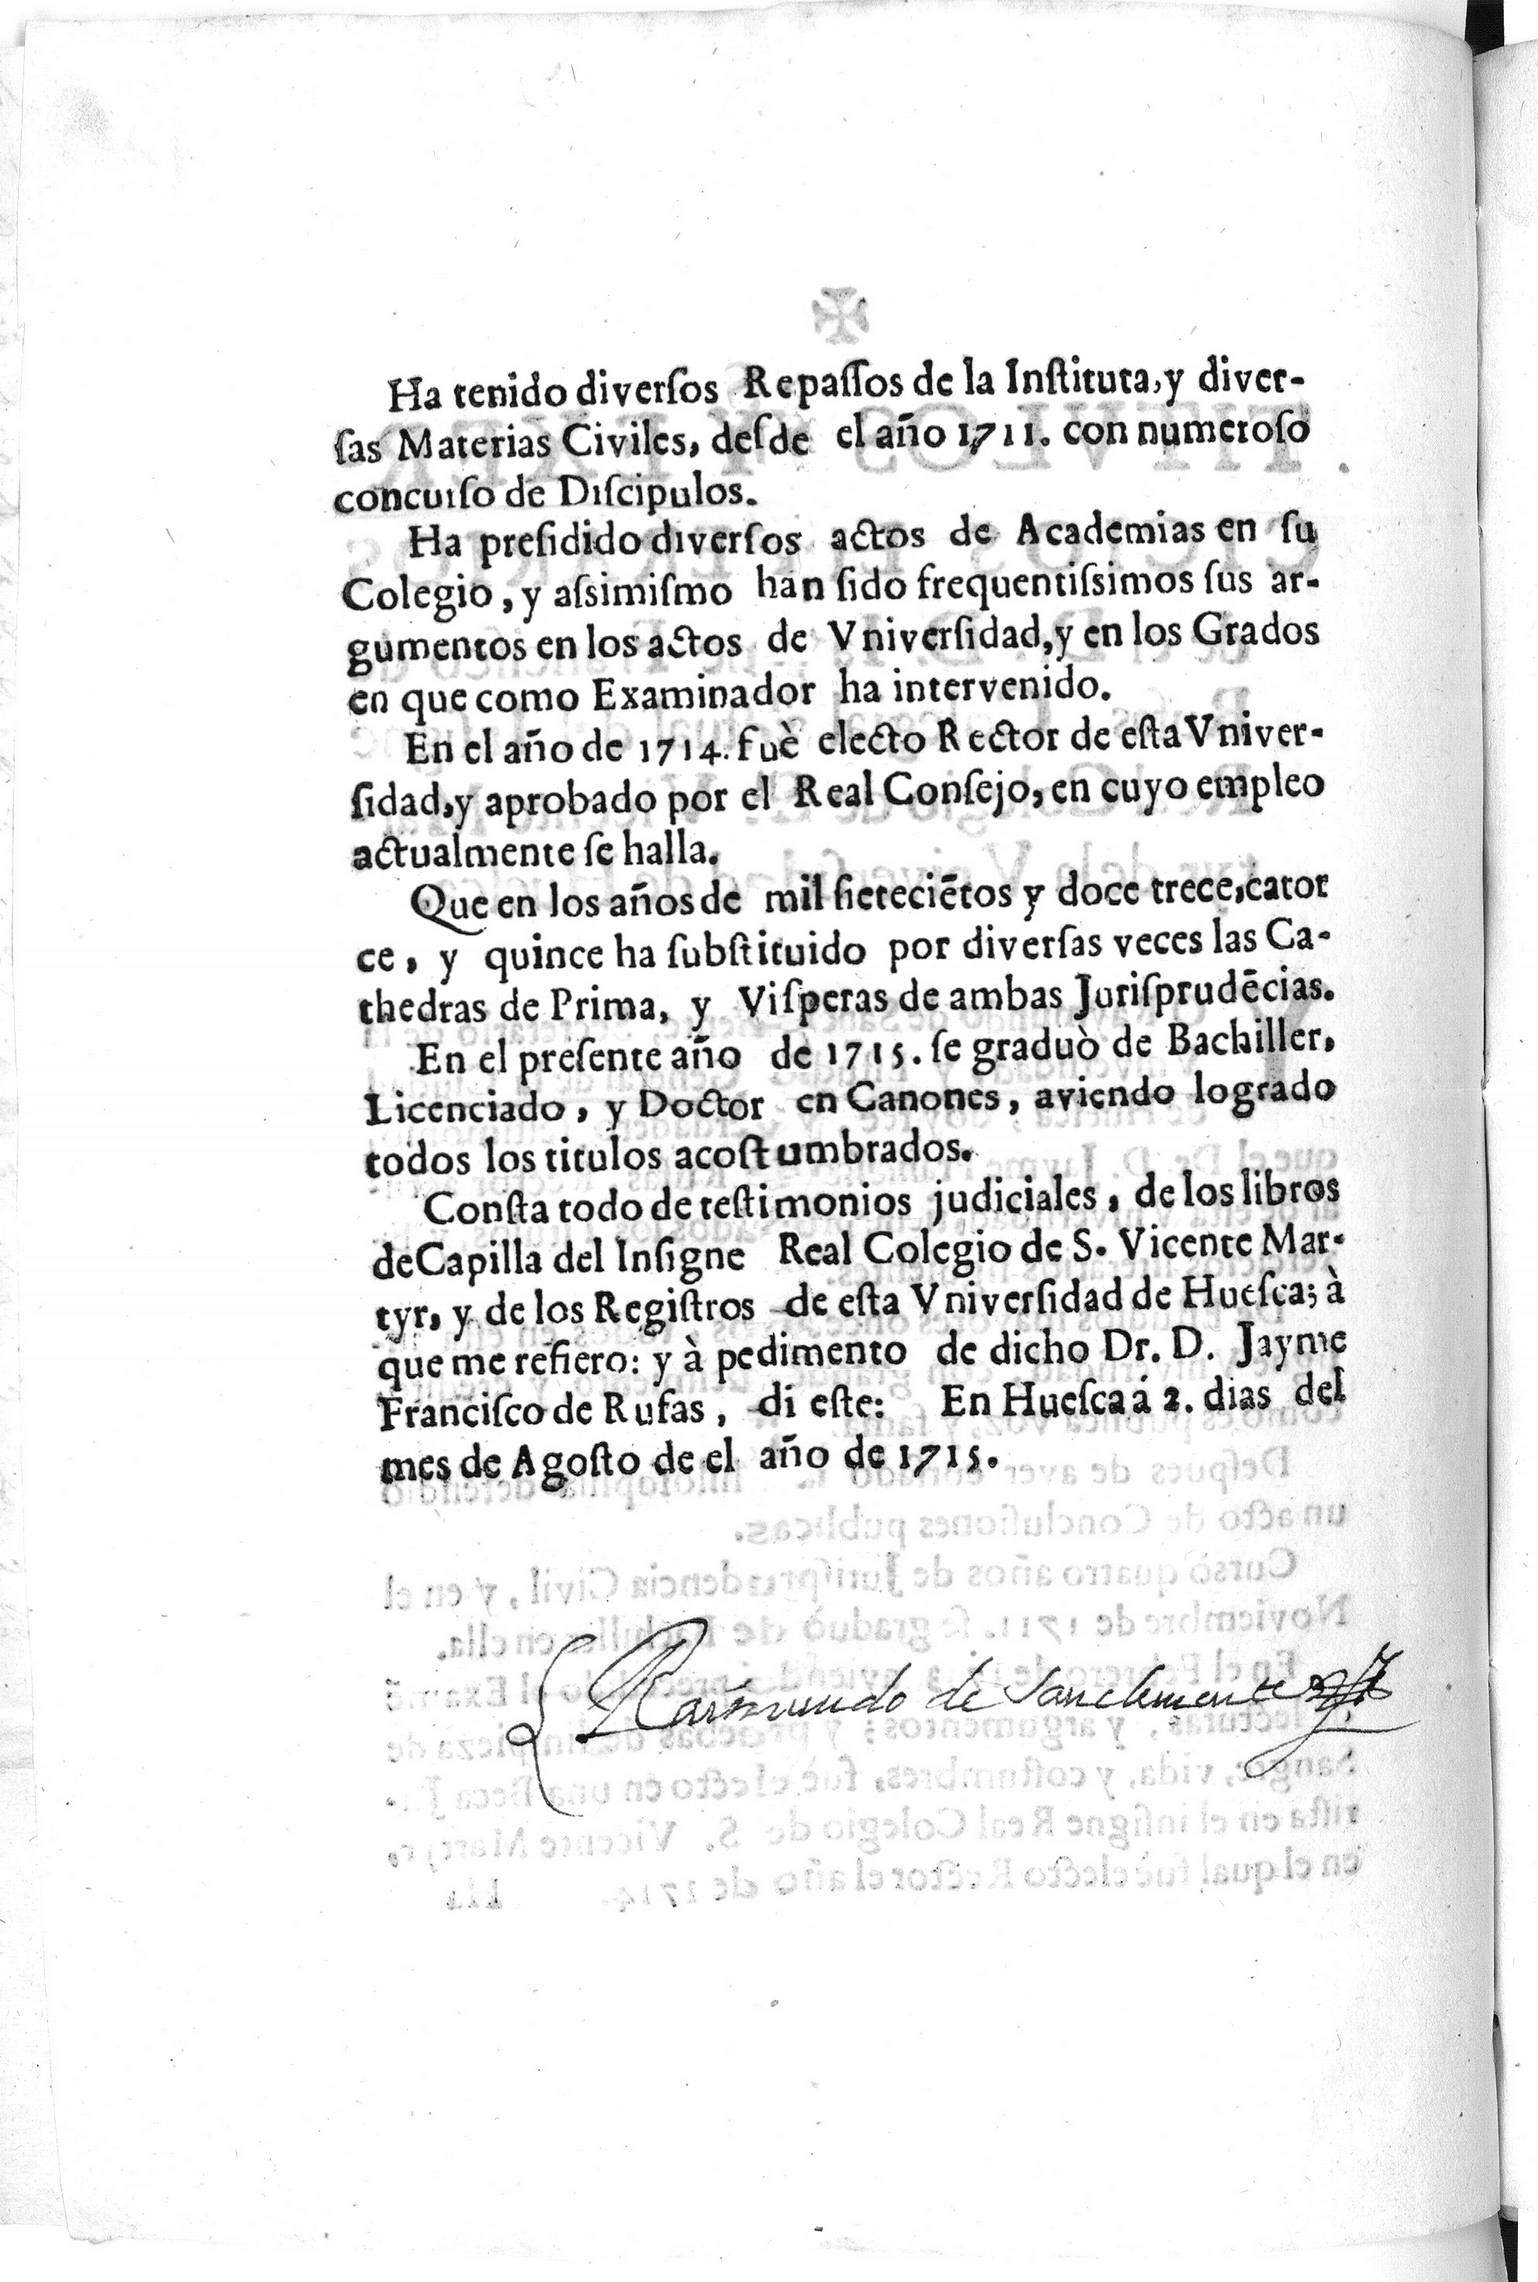 Ha tenido diverſos Repaſſos de la Inſtituta, y diver-
ſas Materias Civiles, deſde el año 1711. con numeroſo
concurſo de Diſcipulos.
Ha preſidido diverſos actos de Academias en ſu
Colegio, y aſsimiſmo han ſido frequentiſsimos ſus ar-
gumentos en los actos de Vniverſidad, y en los Grados
en que como Examinador ha intervenido.
En el año de 1714. fuè electo Rector de eſta Vniver-
ſidad, y aprobado por el Real Conſejo, en cuyo empleo
actualmente ſe halla.
Que en los años de mil ſieteciẽtos y doce trece, cator
ce, y quince ha ſubſtituido por diverſas veces las Ca-
thedras de Prima, y Viſperas de ambas Juriſprudẽcias.
En el preſente año de 1715. ſe graduò de Bachiller,
Licenciado, y Doctor en Canones, aviendo logrado
todos los titulos acoſtumbrados.
Conſta todo de teſtimonios judiciales, de los libros
de Capilla del Inſigne Real Colegio de S. Vicente Mar-
tyr, y de los Regiſtros de eſta Vniverſidad de Hueſca; à
que me refiero: y à pedimento de dicho Dr. D. Jayme
Franciſco de Rufas, di eſte: En Hueſca á 2. dias del
mes de Agoſto de el año de 1715.
Raimundo de Sanclemente